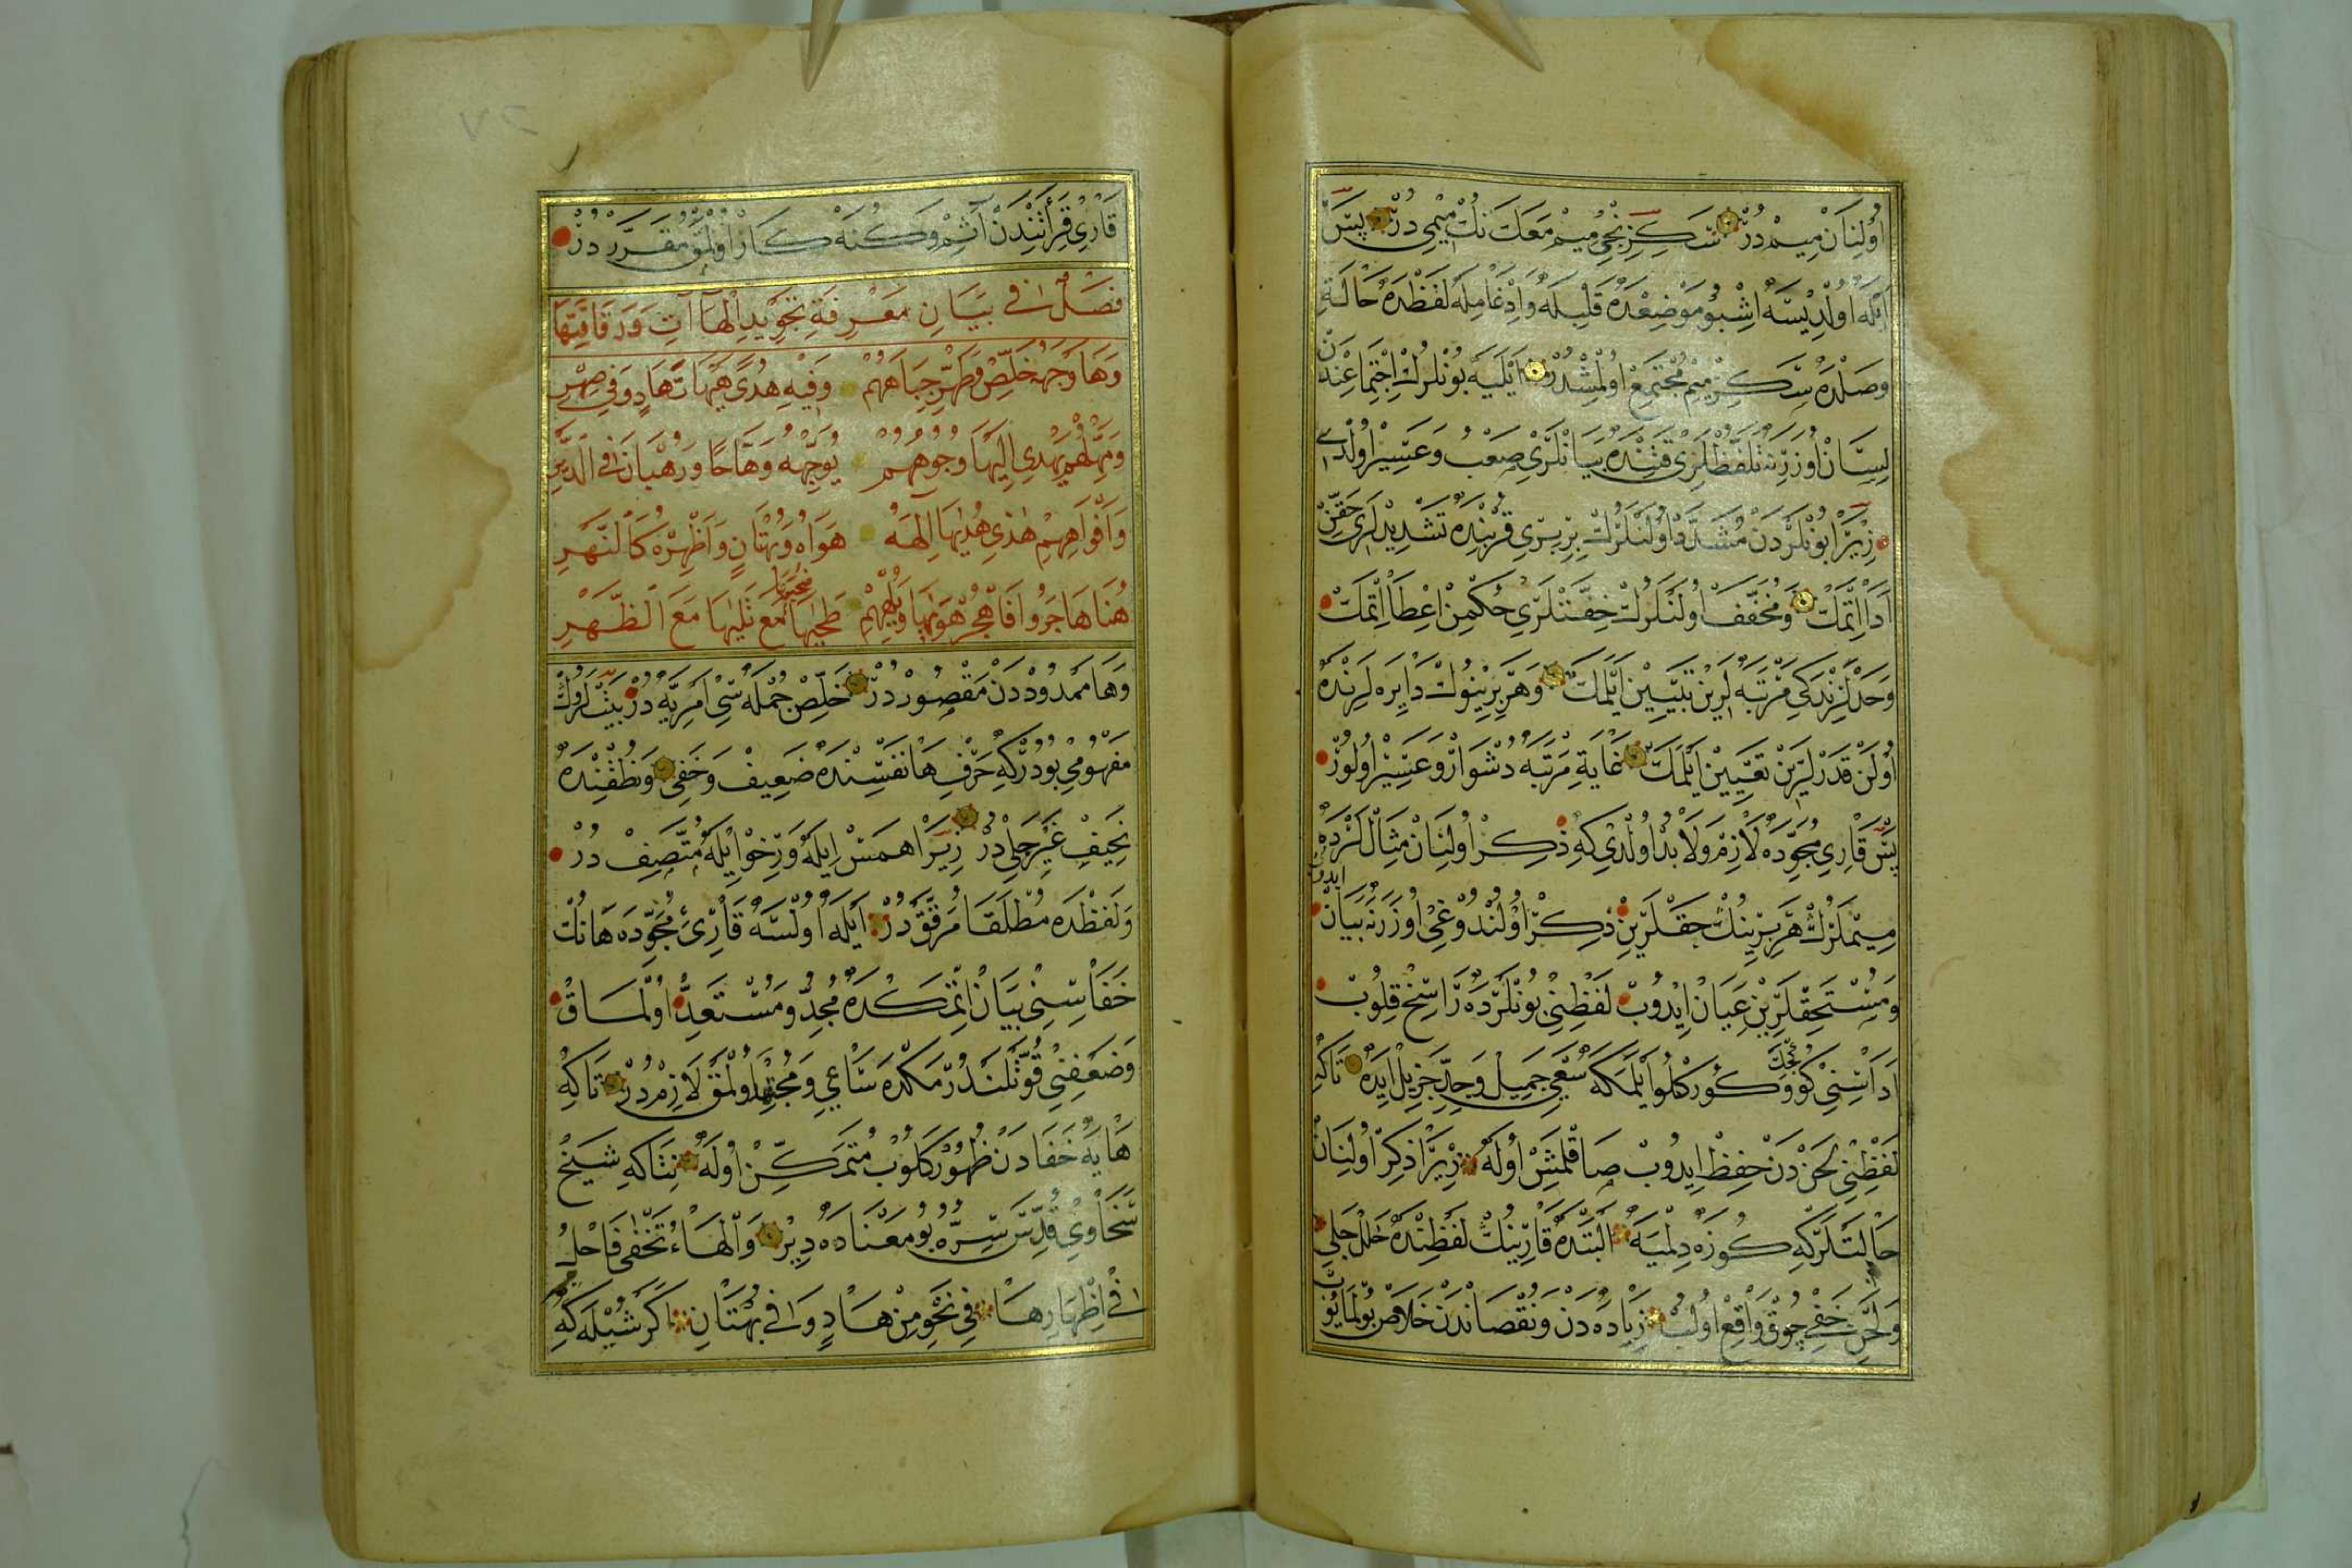 اُولِنَانْ مِيمْ دُرْ سَكِزِنْجِي مِيمْ مَعَكَ نُكْ مِيْمِي دُرْ پَسْ
اَيْلَه اُولْدِيسَه اِشْبُو مَوْضِعْدَه قَلْبِلَه وَاِدْغَامِلَه لَفْظْدَه حَالَتِ
وَصْلْدَه سَكِزْ مِيمْ مُجْتَمِعْ اُولْمِشْدُرْ اَيْلَيَه بُونْلَرُكْ اِجْتِمَاعِنْدَنْ
لِسَانْ اُوزَرِنَه تَلَفُّظْلَرِي قَتِنْدَه بَيَانْلَرِي صَعْبْ وَعَسِيرْ اُولْدِي
زِيرَا بُونْلَرْدَنْ مُشَدَّدْ اُولَنْلَرُكْ بِرْبِرِي قُرْبِنْدَه تَشْدِيدْلَرِي حَقِّنْ
اَدَا اِتْمَكْ وَمُخَفَّفْ اُولَنْلَرُكْ خِفَّتْلَرِي حُكْمِنْ اِعْطَا اِتْمَكْ
وَحَدْلَرِنْدَكِي مَرْتَبَه لَرِينْ تَبْيِينْ اَيْلَمَكْ وَهَرْ بِرِينُوكْ دَايِرَه لَرِنْدَه
اُولَنْ قَدَرْلَرِينْ تَعْيِينْ اَيْلَمَكْ غَايَةِ مَرْتَبَه دُشْوَارْ وَعَسِيرْ اُولُورْ
پَسْ قَارِيِ مُجَوِّدَه لَازِمْ وَلَابُدْ اُولْدِي كِه ذِكِرْ اُولِنَانْ مِثَالْلَرْدَه
مِيمْلَرُكْ هَرْ بِرِينُكْ حَقْلَرِينْ ذِكِرْ اُولُنْدُوغِي اُوزَرَه بَيَانْ ايدوب
وَمُسْتَحَقْلَرِينْ عَيَانْ اِيْدُوبْ لَفْظِنِي بُونْلَرْدَه رَاسِخْ قِلُوبْ
اَدَاسِنِي كُوچَكْ وَكُورْكْلُو اَيْلَمَكَه سَعْيِ جَمِيلْ وَجِدِّ جَزِيلْ اِيدَه تَاكِه
لَفْظِنِي لَحَنْ دَنْ حِفِظْ اِيدُوبْ صَاقْلَمِشْ اُولَه زِيرَا ذِكِرْ اُولِنَانْ
حَالَتْلَرْكِه كُوزَه دِلْمَيَه اَلْبَتَّه قَارِينُكْ لَفْظِنْدَه خَلَلِ جَلِي
وَلَحْنِ خَفِي چُوقْ وَاقِعْ اُولُبْ زِيَادَه دَنْ وَنُقْصَانْدَنْ خَلَاصْ بُولْمَايُوب
قَارِيْ قِرَأَتِنْدَنْ آثِمْ وَكُنَهْكَارْ اُولْمَقْ مُقَرَّرْ دُرْ
فَصْلٌ فِي بَيَانِ مَعْرِفَةِ تَجْوِيدِ اَلْهَاآتِ وَرَقَاقَتِهَا
وَهَا وَجْهَهُ خَلِّصْ وَطَهِّرْ جِبَاهَهُمْ وَفِيهِ هُدًى هَيْهَاتَ هَادٍ وَفِي صِهْرِ
وَمَهِّلْهُمُ يَهْدِي اِلَيْهَا وُجُوهَهُمْ يُوَجِّهْهُ وَهَّاجًا وَرُهْبَانَ فِي الدَّيْرِ
وَاَفْوَاهِهِمْ هٰذِي هُدٰيهَا اِلٰهَهُ هَوَاهُ وَبُهْتَانٍ وَاَظْهِرْهُ كَالنَّهْرِ
هُنَا هَاجَرُوا فَاهْجُرْ هَوٰيهَا وَيُلْهِهِمْ طَحٰيهَا مَعْ تَلٰيهَا مَعَ الظَّهْرِ
وَهَا مَمْدُودْدَنْ مَقْصُورْدُرْ خَلِّصْ جُمْلَه سِي اَمْرِيَّه دُرْ بَيْتْلَرُوكْ
مَفْهُومِي بُودُرْكِه حَرْفِ هَا نَفْسِنْدَه ضَعِيفْ وَخَفِي وَنُطْقِنْدَه
نَحِيفْ غَيْرِ جَلِي دُرْ زِيرَا هَمْسْ اِيلَه وَرِخْو اِيْلَه مُتَّصِفْ دُرْ
وَلَفْظْدَه مُطْلَقَا مُرَقَّقْ دُرْ اَيْلَه اُولْسَه قَارِئِ مُجَوِّدَه هَانُكْ
خَفَاسِنِي بَيَانْ اِتْمَكْدَه مُجِدْ وَمُسْتَعِدْ اُولْمَاقْ
وَضَعْفِنِي قُوَّتْلَنْدُرْمَكْدَه سَاعِي وَمُجْتَهِدْ اُولْمَقْ لَازِمْ دُرْ تَاكِه
هَايَه خَفَادَنْ ظُهُورَ كَلُوبْ مُتَمَكِّنْ اُولَه نِتَاكِه شَيْخْ
سَخَاوِي قُدِّسَ سِرُّهُ بُو مَعْنَادَه دِيرْ وَالْهَاءُ تَخْفَى فَاحْلُ
فِي اِظْهَارِهَا فِي نَحْوِ مِنْ هَادٍ وَفِي بُهْتَانِ اَكَرْ شُيْلَه كِه